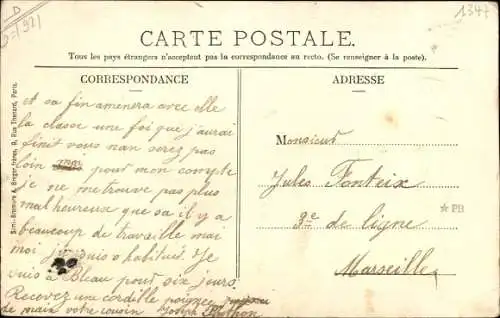 D
1347
CARTE POSTALE.
Tous les pays étrangers n'acceptent pas la correspondance au recto. (Se renseigner à la poste).
CORRESPONDANCE
et sa fin amènera avec elle
la classe une foi que j'aurai
finit vous nan serez pas
loin pour mon compte
je ne me trouve pas plus
malheureux que sa il y a
beaucoup de travaille mai
moi j'y suis habitué. Je
suis à Bleau pour six jours.
Recevez une cordille poignee
de main votre cousin Joseph
ADRESSE
Monsieur
Jules Fonteix
9e de ligne
Marseille
PB